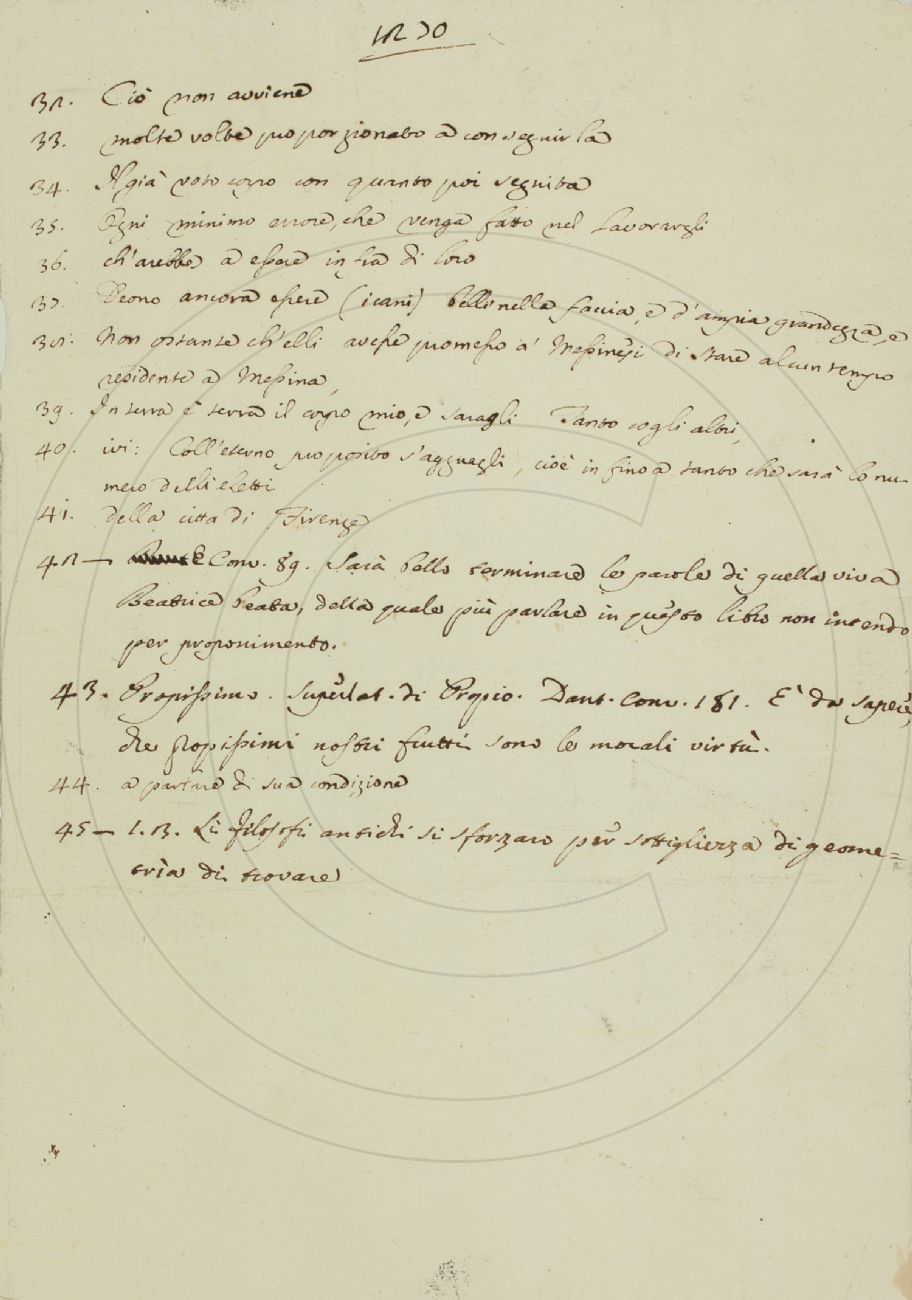 1270
32. Ciò non avviene
33. molte volte proporzionato a conseguirla
34. Il già voto corpo con quanto poi seguita
35. Ogni minimo errore, che venga fatto nel lavorargli
36. ch'arebbe a essere in fra di loro
37. Deono ancora essere (i cani) belli nella faccia, e d'ampia grandezza, e
38. Non ostante ch'elli avesse promesso a' Messinesi di stare alcun tempo
residente a Messina,
39. In terra è terra il corpo mio, e saragli Tanto cogli altri,
40. ivi: Coll'eterno proposito s'agguagli, cioè in fino a tanto che sarà lo nu-
mero delli eletti
41. della citta di Firenze
42 — Conv. 89. Sarà bello terminare le parole di quella viva
Beatrice beata, della quale più parlare in questo libro non intendo
per proponimento.
43. Propissimo. Superlat. di Propio. Dant. Conv. 181. E' da sapere,
che propissimi nostri frutti sono le morali virtù.
44. a partire di sua condizione
45 — 1. 3. Li filosofi antichi si sforzaro per sottigliezza di geome=
tria di trovare